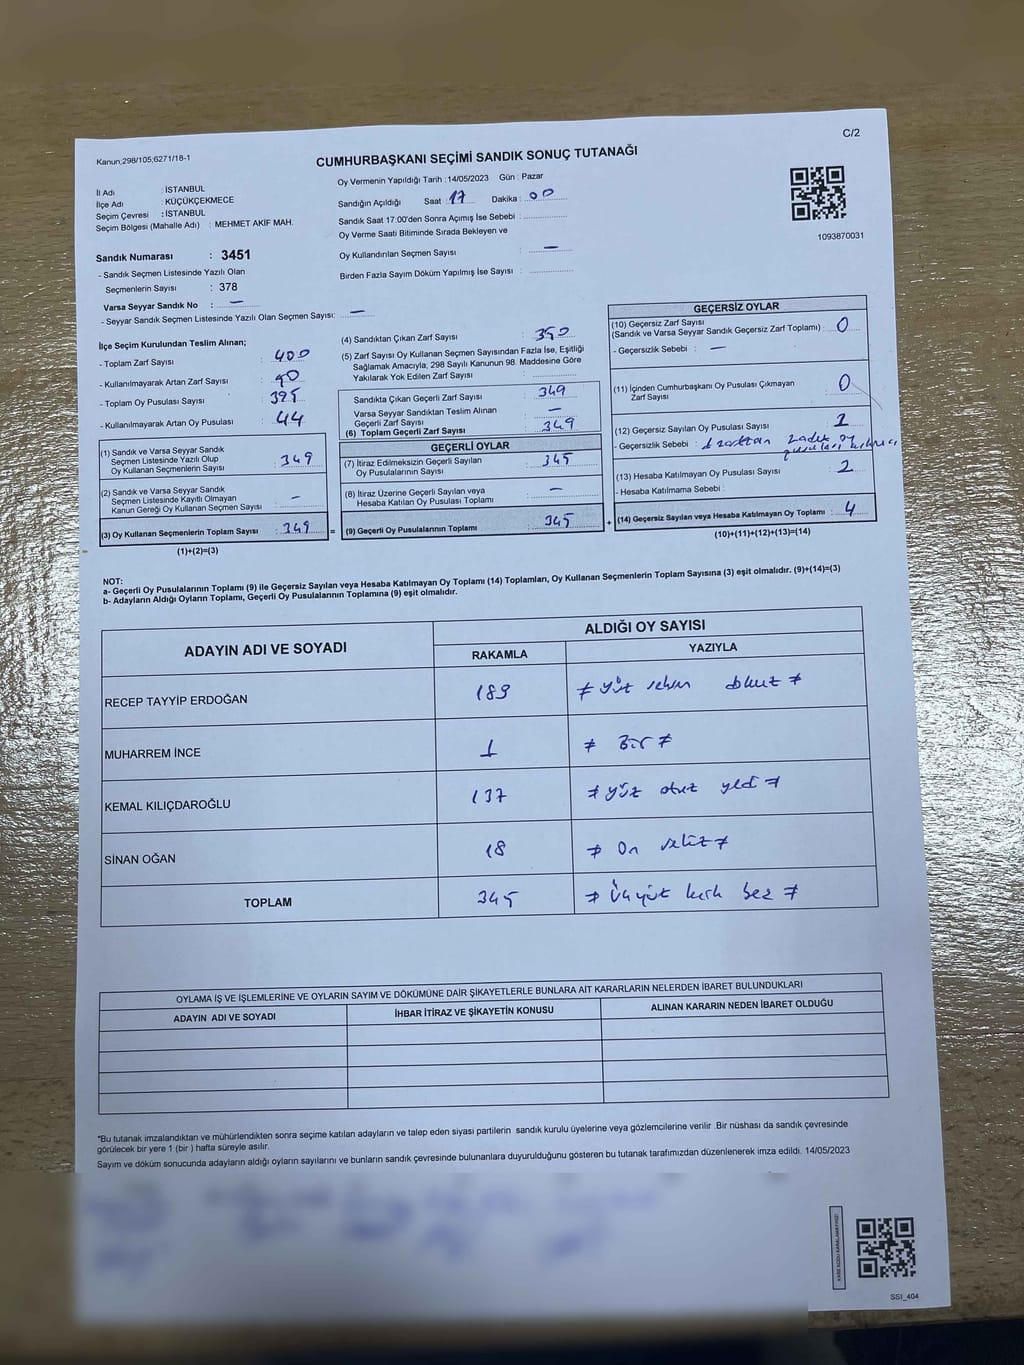 C/2
Kanun;298/105;6271/18-1
CUMHURBAŞKANI SEÇİMİ SANDIK SONUÇ TUTANAĞI
İl Adı : İSTANBUL
İlçe Adı : KÜÇÜKÇEKMECE
Seçim Çevresi : İSTANBUL
Seçim Bölgesi (Mahalle Adı) : MEHMET AKİF MAH.
Oy Vermenin Yapıldığı Tarih :14/05/2023 Gün : Pazar
Sandığın Açıldığı Saat : 17 Dakika : 00
Sandık Saat 17:00'den Sonra Açımış İse Sebebi :
Oy Verme Saati Bitiminde Sırada Bekleyen ve
Oy Kullandırılan Seçmen Sayısı : —
Birden Fazla Sayım Döküm Yapılmış İse Sayısı :
1093870031
Sandık Numarası : 3451
- Sandık Seçmen Listesinde Yazılı Olan
Seçmenlerin Sayısı : 378
Varsa Seyyar Sandık No : —
- Seyyar Sandık Seçmen Listesinde Yazılı Olan Seçmen Sayısı: —
İlçe Seçim Kurulundan Teslim Alınan;
- Toplam Zarf Sayısı : 400
- Kullanılmayarak Artan Zarf Sayısı :
- Toplam Oy Pusulası Sayısı : 395
- Kullanılmayarak Artan Oy Pusulası : 44
(1) Sandık ve Varsa Seyyar Sandık
Seçmen Listesinde Yazılı Olup
Oy Kullanan Seçmenlerin Sayısı : 349
(2) Sandık ve Varsa Seyyar Sandık
Seçmen Listesinde Kayıtlı Olmayan
Kanun Gereği Oy Kullanan Seçmen Sayısı : —
(3) Oy Kullanan Seçmenlerin Toplam Sayısı : 349
(1)+(2)=(3)
(4) Sandıktan Çıkan Zarf Sayısı : 350
(5) Zarf Sayısı Oy Kullanan Seçmen Sayısından Fazla İse, Eşitliği
Sağlamak Amacıyla, 298 Sayılı Kanunun 98. Maddesine Göre
Yakılarak Yok Edilen Zarf Sayısı :
Sandıkta Çıkan Geçerli Zarf Sayısı : 349
Varsa Seyyar Sandıktan Teslim Alınan
Geçerli Zarf Sayısı : —
(6) Toplam Geçerli Zarf Sayısı : 349
GEÇERLİ OYLAR
(7) İtiraz Edilmeksizin Geçerli Sayılan
Oy Pusulalarının Sayısı : 345
(8) İtiraz Üzerine Geçerli Sayılan veya
Hesaba Katılan Oy Pusulası Toplamı : —
(9) Geçerli Oy Pusulalarının Toplamı : 345
=
+
GEÇERSİZ OYLAR
(10) Geçersiz Zarf Sayısı
(Sandık ve Varsa Seyyar Sandık Geçersiz Zarf Toplamı) : 0
- Geçersizlik Sebebi : —
(11) İçinden Cumhurbaşkanı Oy Pusulası Çıkmayan
Zarf Sayısı : 0
(12) Geçersiz Sayılan Oy Pusulası Sayısı : 2
- Geçersizlik Sebebi : 1 zarftan
(13) Hesaba Katılmayan Oy Pusulası Sayısı : 2
- Hesaba Katılmama Sebebi :
(14) Geçersiz Sayılan veya Hesaba Katılmayan Oy Toplamı : 4
(10)+(11)+(12)+(13)=(14)
NOT:
a- Geçerli Oy Pusulalarının Toplamı (9) ile Geçersiz Sayılan veya Hesaba Katılmayan Oy Toplamı (14) Toplamları, Oy Kullanan Seçmenlerin Toplam Sayısına (3) eşit olmalıdır. (9)+(14)=(3)
b- Adayların Aldığı Oyların Toplamı, Geçerli Oy Pusulalarının Toplamına (9) eşit olmalıdır.
ADAYIN ADI VE SOYADI
ALDIĞI OY SAYISI
RAKAMLA YAZIYLA
RECEP TAYYİP ERDOĞAN 189 ≠ yüz seksen dokuz ≠
MUHARREM İNCE 1 ≠ Bir ≠
KEMAL KILIÇDAROĞLU 137 ≠ yüz otuz yedi ≠
SİNAN OĞAN 18 ≠ On sekiz ≠
TOPLAM 345 ≠ Üçyüz kırk beş ≠
OYLAMA İŞ VE İŞLEMLERİNE VE OYLARIN SAYIM VE DÖKÜMÜNE DAİR ŞİKAYETLERLE BUNLARA AİT KARARLARIN NELERDEN İBARET BULUNDUKLARI
ADAYIN ADI VE SOYADI İHBAR İTİRAZ VE ŞİKAYETİN KONUSU ALINAN KARARIN NEDEN İBARET OLDUĞU
*Bu tutanak imzalandıktan ve mühürlendikten sonra seçime katılan adayların ve talep eden siyasi partilerin sandık kurulu üyelerine veya gözlemcilerine verilir. Bir nüshası da sandık çevresinde
görülecek bir yere 1 (bir ) hafta süreyle asılır.
Sayım ve döküm sonucunda adayların aldığı oyların sayılarını ve bunların sandık çevresinde bulunanlara duyurulduğunu gösteren bu tutanak tarafımızdan düzenlenerek imza edildi. 14/05/2023
SSI_404